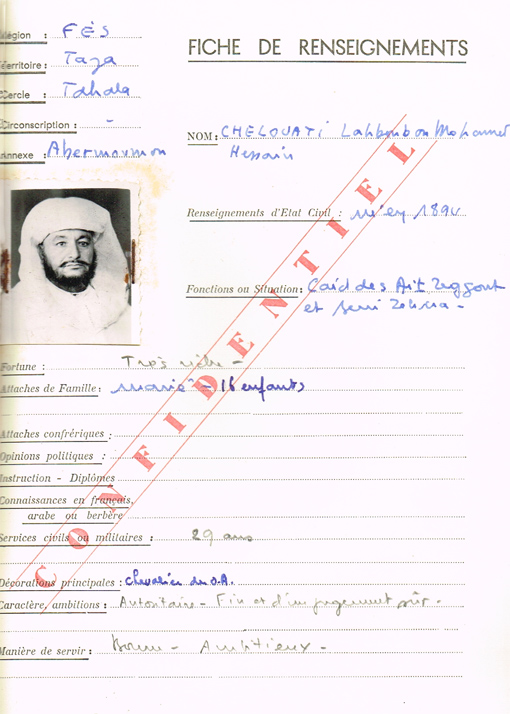 Région : FÈS
Territoire : Taza
Cercle : Tahala
Circonscription : -
Annexe : Ahermoumou
FICHE DE RENSEIGNEMENTS
NOM : CHELOUATI Lahbib bou Mohamed
Hessain
Renseignements d'Etat Civil : né en 1894
Fonctions ou Situation : Caïd des Ait Zeggout
et Beni Zehna -
CONFIDENTIEL
Fortune : Très riche -
Attaches de Famille : marié - 16 enfants
Attaches confrériques :
Opinions politiques :
Instruction - Diplômes
Connaissances en français,
arabe ou berbère
Services civils ou militaires : 29 ans
Décorations principales : Chevalier du O.A.
Caractère, ambitions : Autoritaire - Fin et d'un jugement sûr.
Manière de servir : Bonne - Ambitieux -